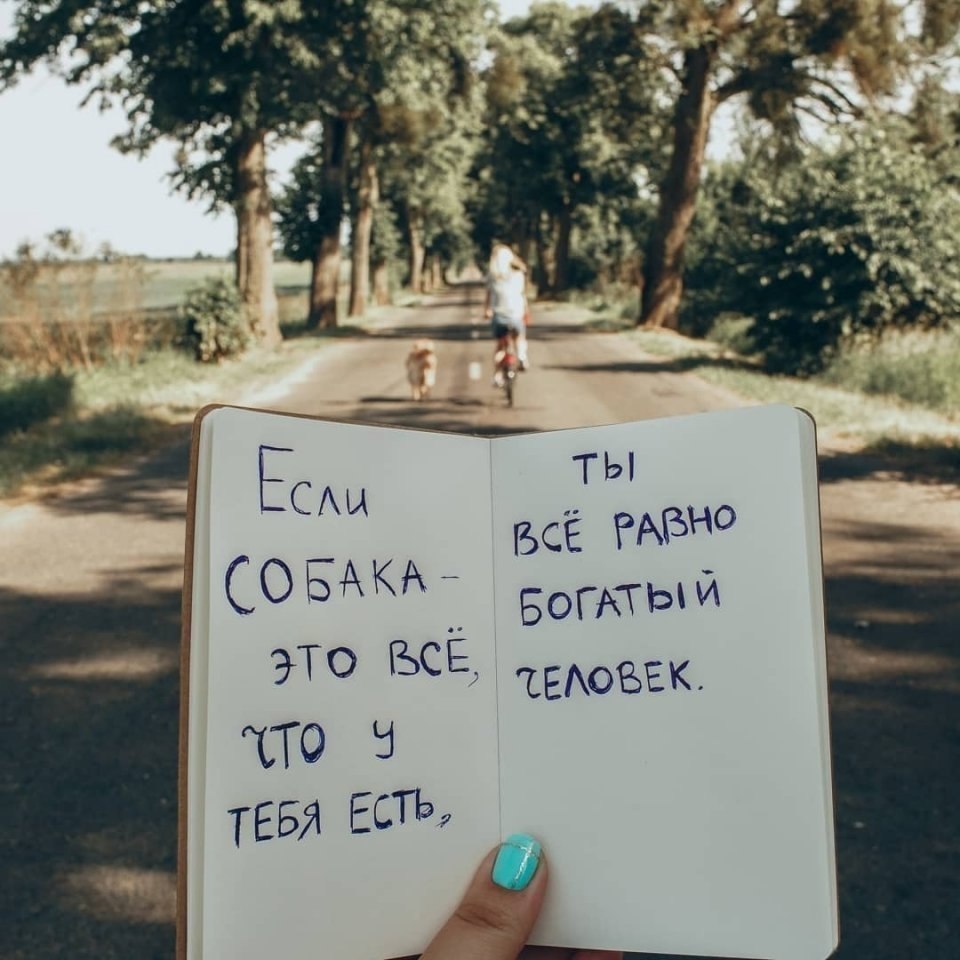 Если
СОБАКА –
ЭТО ВСЁ,
ЧТО У
ТЕБЯ ЕСТЬ,
ТЫ
ВСЁ РАВНО
БОГАТЫЙ
ЧЕЛОВЕК.